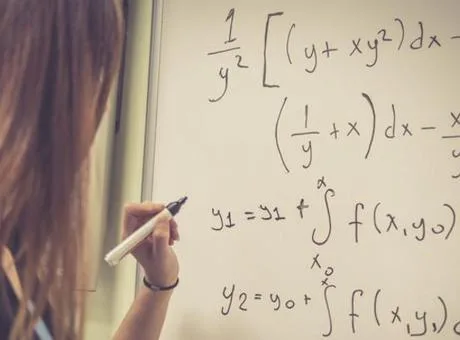 1/y² [(y + xy²)dx -
(1/y + x)dx - x/y
y1 = y1 + ∫_{x0}^{x} f(x,y0)
y2 = y0 + ∫^{x} f(x,y1)